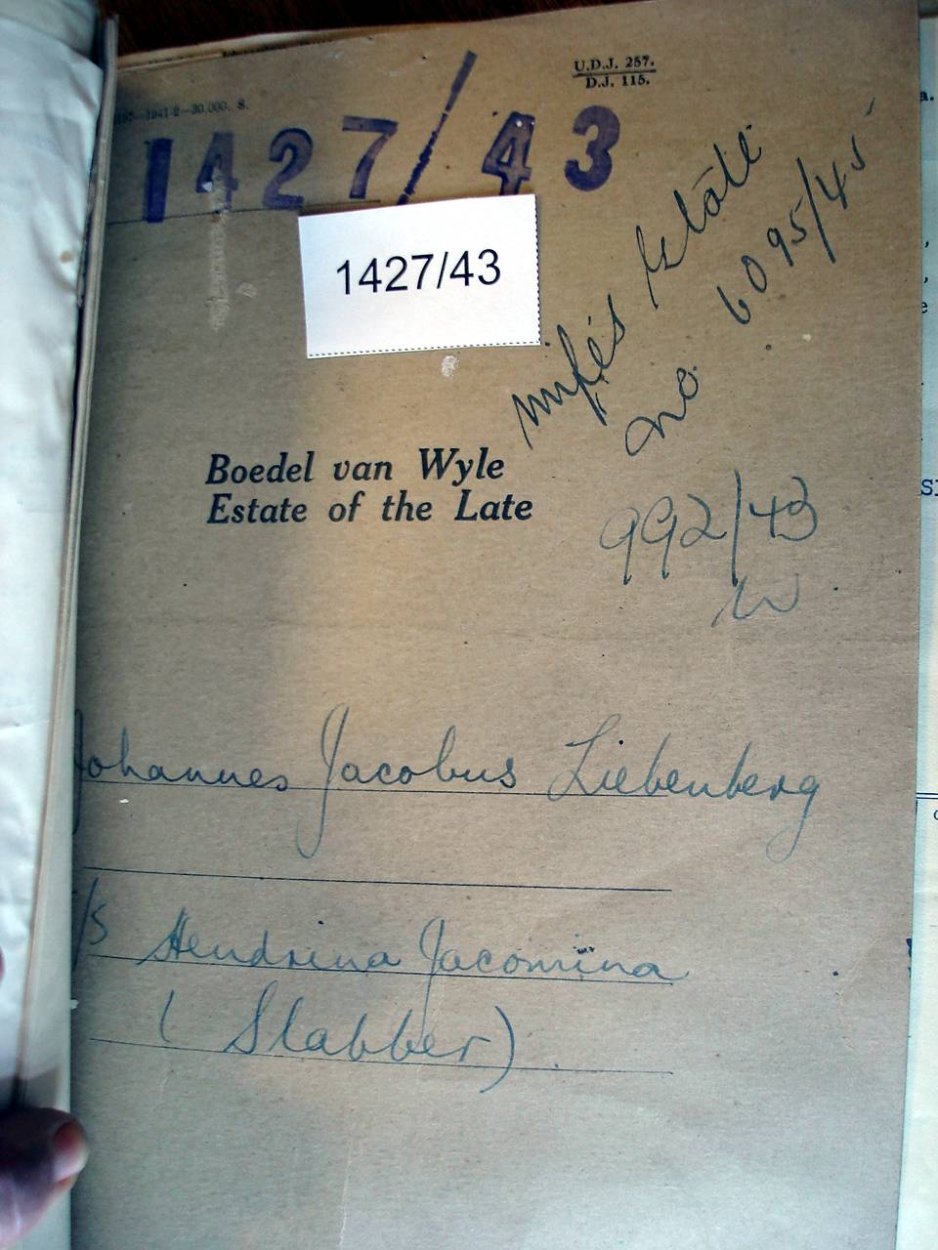 U.D.J. 257.
D.J. 115.
—1941-2—30,000. S.
1427/43
1427/43
Wife's Estate
No. 6095/45
Boedel van Wyle
Estate of the Late
992/43
W
Johannes Jacobus Liebenberg
/s Hendrina Jacomina
(Slabber).